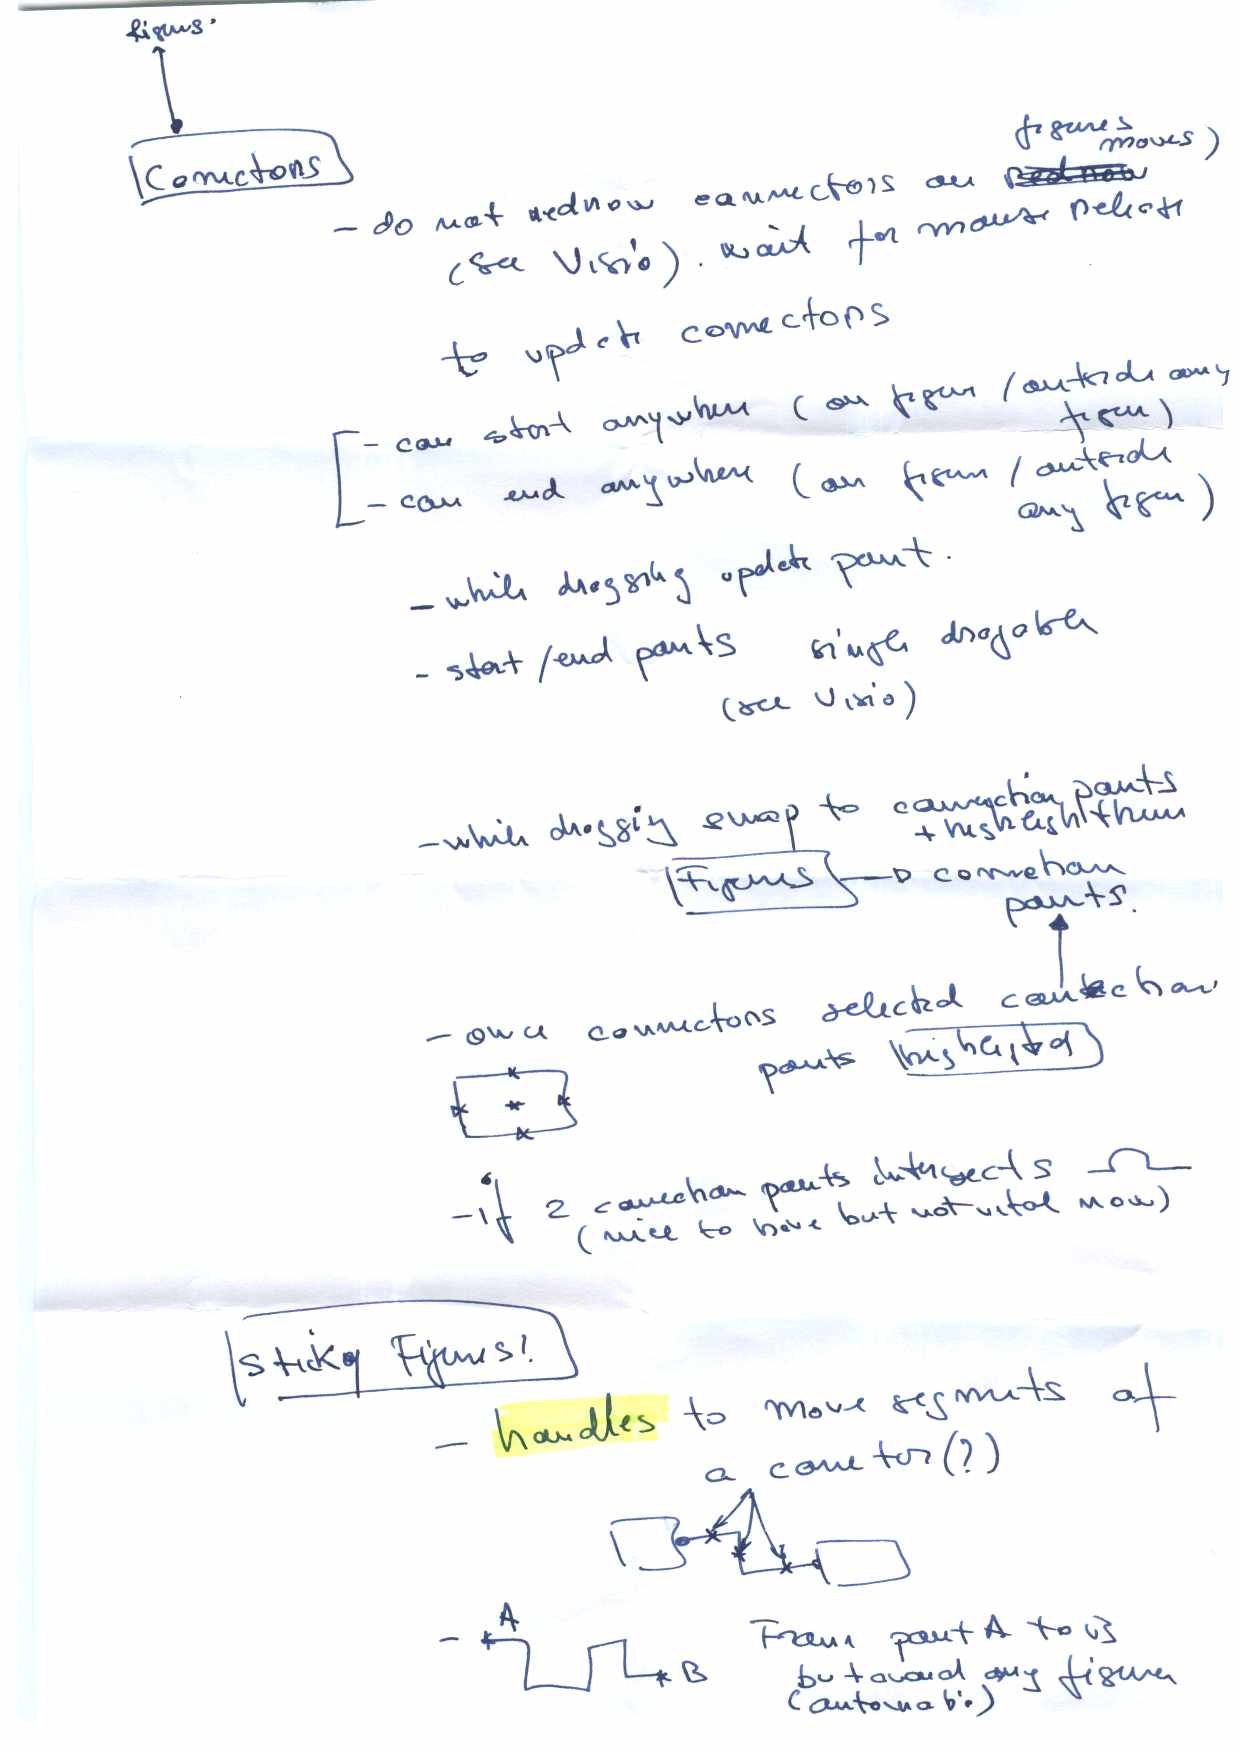 figures.
Connectors
figures
moves)
- do not redraw connectors on
(see Visio). wait for mouse release
to update connectors
- can start anywhere (on figure / outside any
figure)
- can end anywhere (on figure / outside
any figure)
- while dragging update paint.
- start/end points single dragable
(see Visio)
- while dragging snap to connection points
+ highlight them
Figures connection
points.
- once connectors selected connection
points highlighted
- if 2 connection points intersects
(nice to have but not vital now)
Sticky Figures!
- handles to move segments of
a connector(?)
- A B From point A to B
but avoid any figure
(automatic)